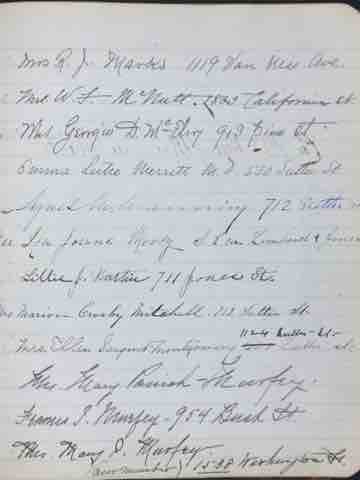 Mrs R. J. Marks 1119 Van Ness Ave.
Mrs. W. F. McNutt. California st.
Mrs. Georgie D. McElroy 913 Pine st.
Emma Sutro Merritt M.D. 530 Sutter St
Agnes 712 Sutter
Joanne Moody S. E. Cor Lombard & Jones
Lillie J. Martin 711 Jones St.
Marion Crosby Mitchell. 712 Sutter St.
1124 Sutter St.
Mrs. Ellen Sargent Montgomery Sutter st.
Mrs. Mary Parrish Murfey.
Francis J. Murfey - 954 Bush St.
Mrs Mary P. Murfey
(new member) 1538 Washington St.